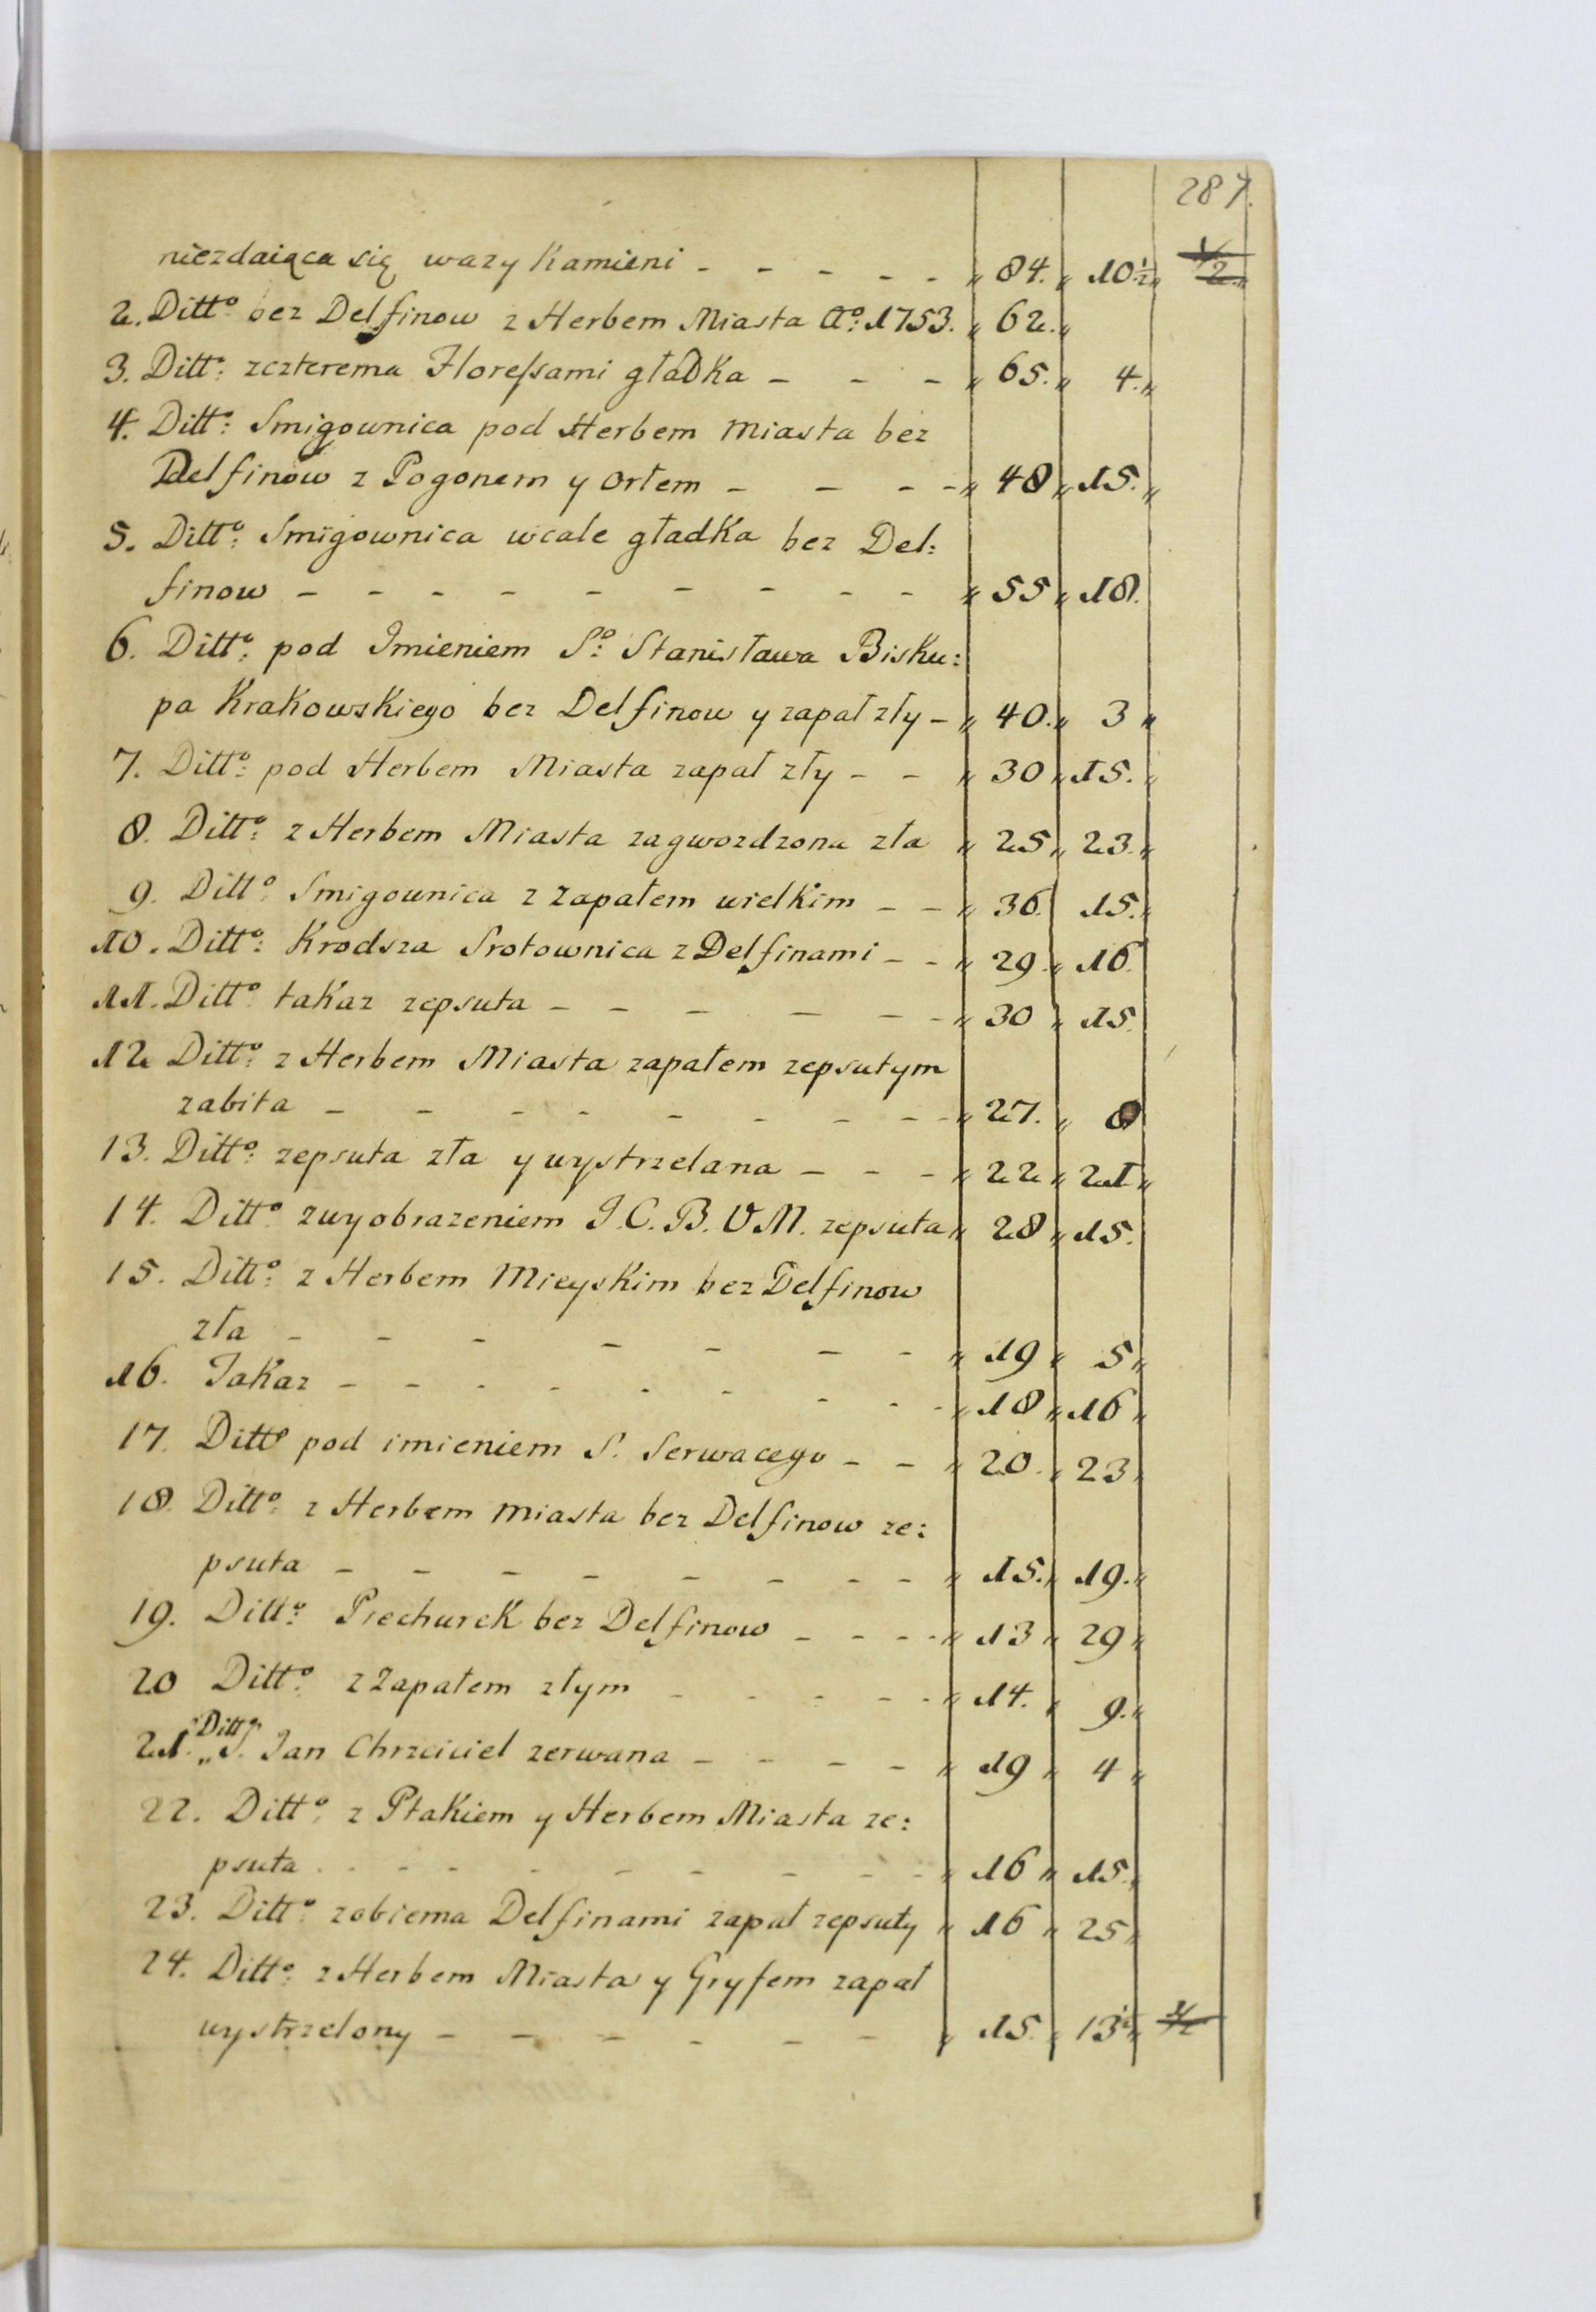 287.
niezdaiąca się wazy Kamieni - - - - - „ 84. „ 10½ „ ½ „
2. Ditto: bez Delfinow z Herbem Miasta Ao: 1753. „ 62. „
3. Ditto: zczterema Floreſsami gładka - - - „ 65. „ 4. „
4. Ditto: Smigownica pod Herbem Miasta bez
Delfinow z Pogonem y orłem - - - - „ 48 „ 15. „
5. Ditto: Smigownica wcale gładka bez Del:
finow - - - - - - - - - „ 55 „ 18.
6. Ditto: pod Imieniem So: Stanisława Bisku:
pa Krakowskiego bez Delfinow y zapał zły - „ 40. „ 3 „
7. Ditto: pod Herbem Miasta zapał zły - - „ 30 „ 15. „
8. Ditto: z Herbem Miasta zagwozdzona zła „ 25 „ 23. „
9. Ditto: Smigownica z Zapałem wielkim - - „ 36. 15. „
10. Ditto: Krodsza Srotownica z Delfinami - - „ 29. „ 16.
11. Ditto: takaz zepsuta - - - - - - „ 30 „ 15.
12 Ditto: z Herbem Miasta zapałem zepsutym
zabita - - - - - - - - - „ 27. „ 8
13. Ditto: zepsuta zła y wystrzelana - - - „ 22 „ 21 „
14. Ditto: zwyobrazeniem I. C. B. V M. zepsuta „ 28 „ 15.
15. Ditto: z Herbem Mieyskim bez Delfinow
zła - - - - - - - „ 19 „ 5 „
16. Takaz - - - - - - - - - „ 18 „ 16 „
17. Ditto pod imieniem S. Serwacego - - „ 20. „ 23 „
18. Ditto: z Herbem Miasta bez Delfinow ze:
psuta - - - - - - - - „ 15. „ 19. „
19. Ditto: Piechurek bez Delfinow - - - - „ 13 „ 29 „
20 Ditto: z Zapałem złym - - - - - „ 14. „ 9. „
21. „ Ditto: S. Ian Chrzciciel zerwana - - - - „ 19 „ 4 „
22. Ditto: z Ptakiem y Herbem Miasta ze:
psuta - - - - - - - - „ 16 „ 15. „
23. Ditto: zobiema Delfinami zapał zepsuty „ 16 „ 25 „
24. Ditto: z Herbem Miasta y Gryfem zapał
wystrzelony - - - - - - „ 15. „ 13½ „ ½